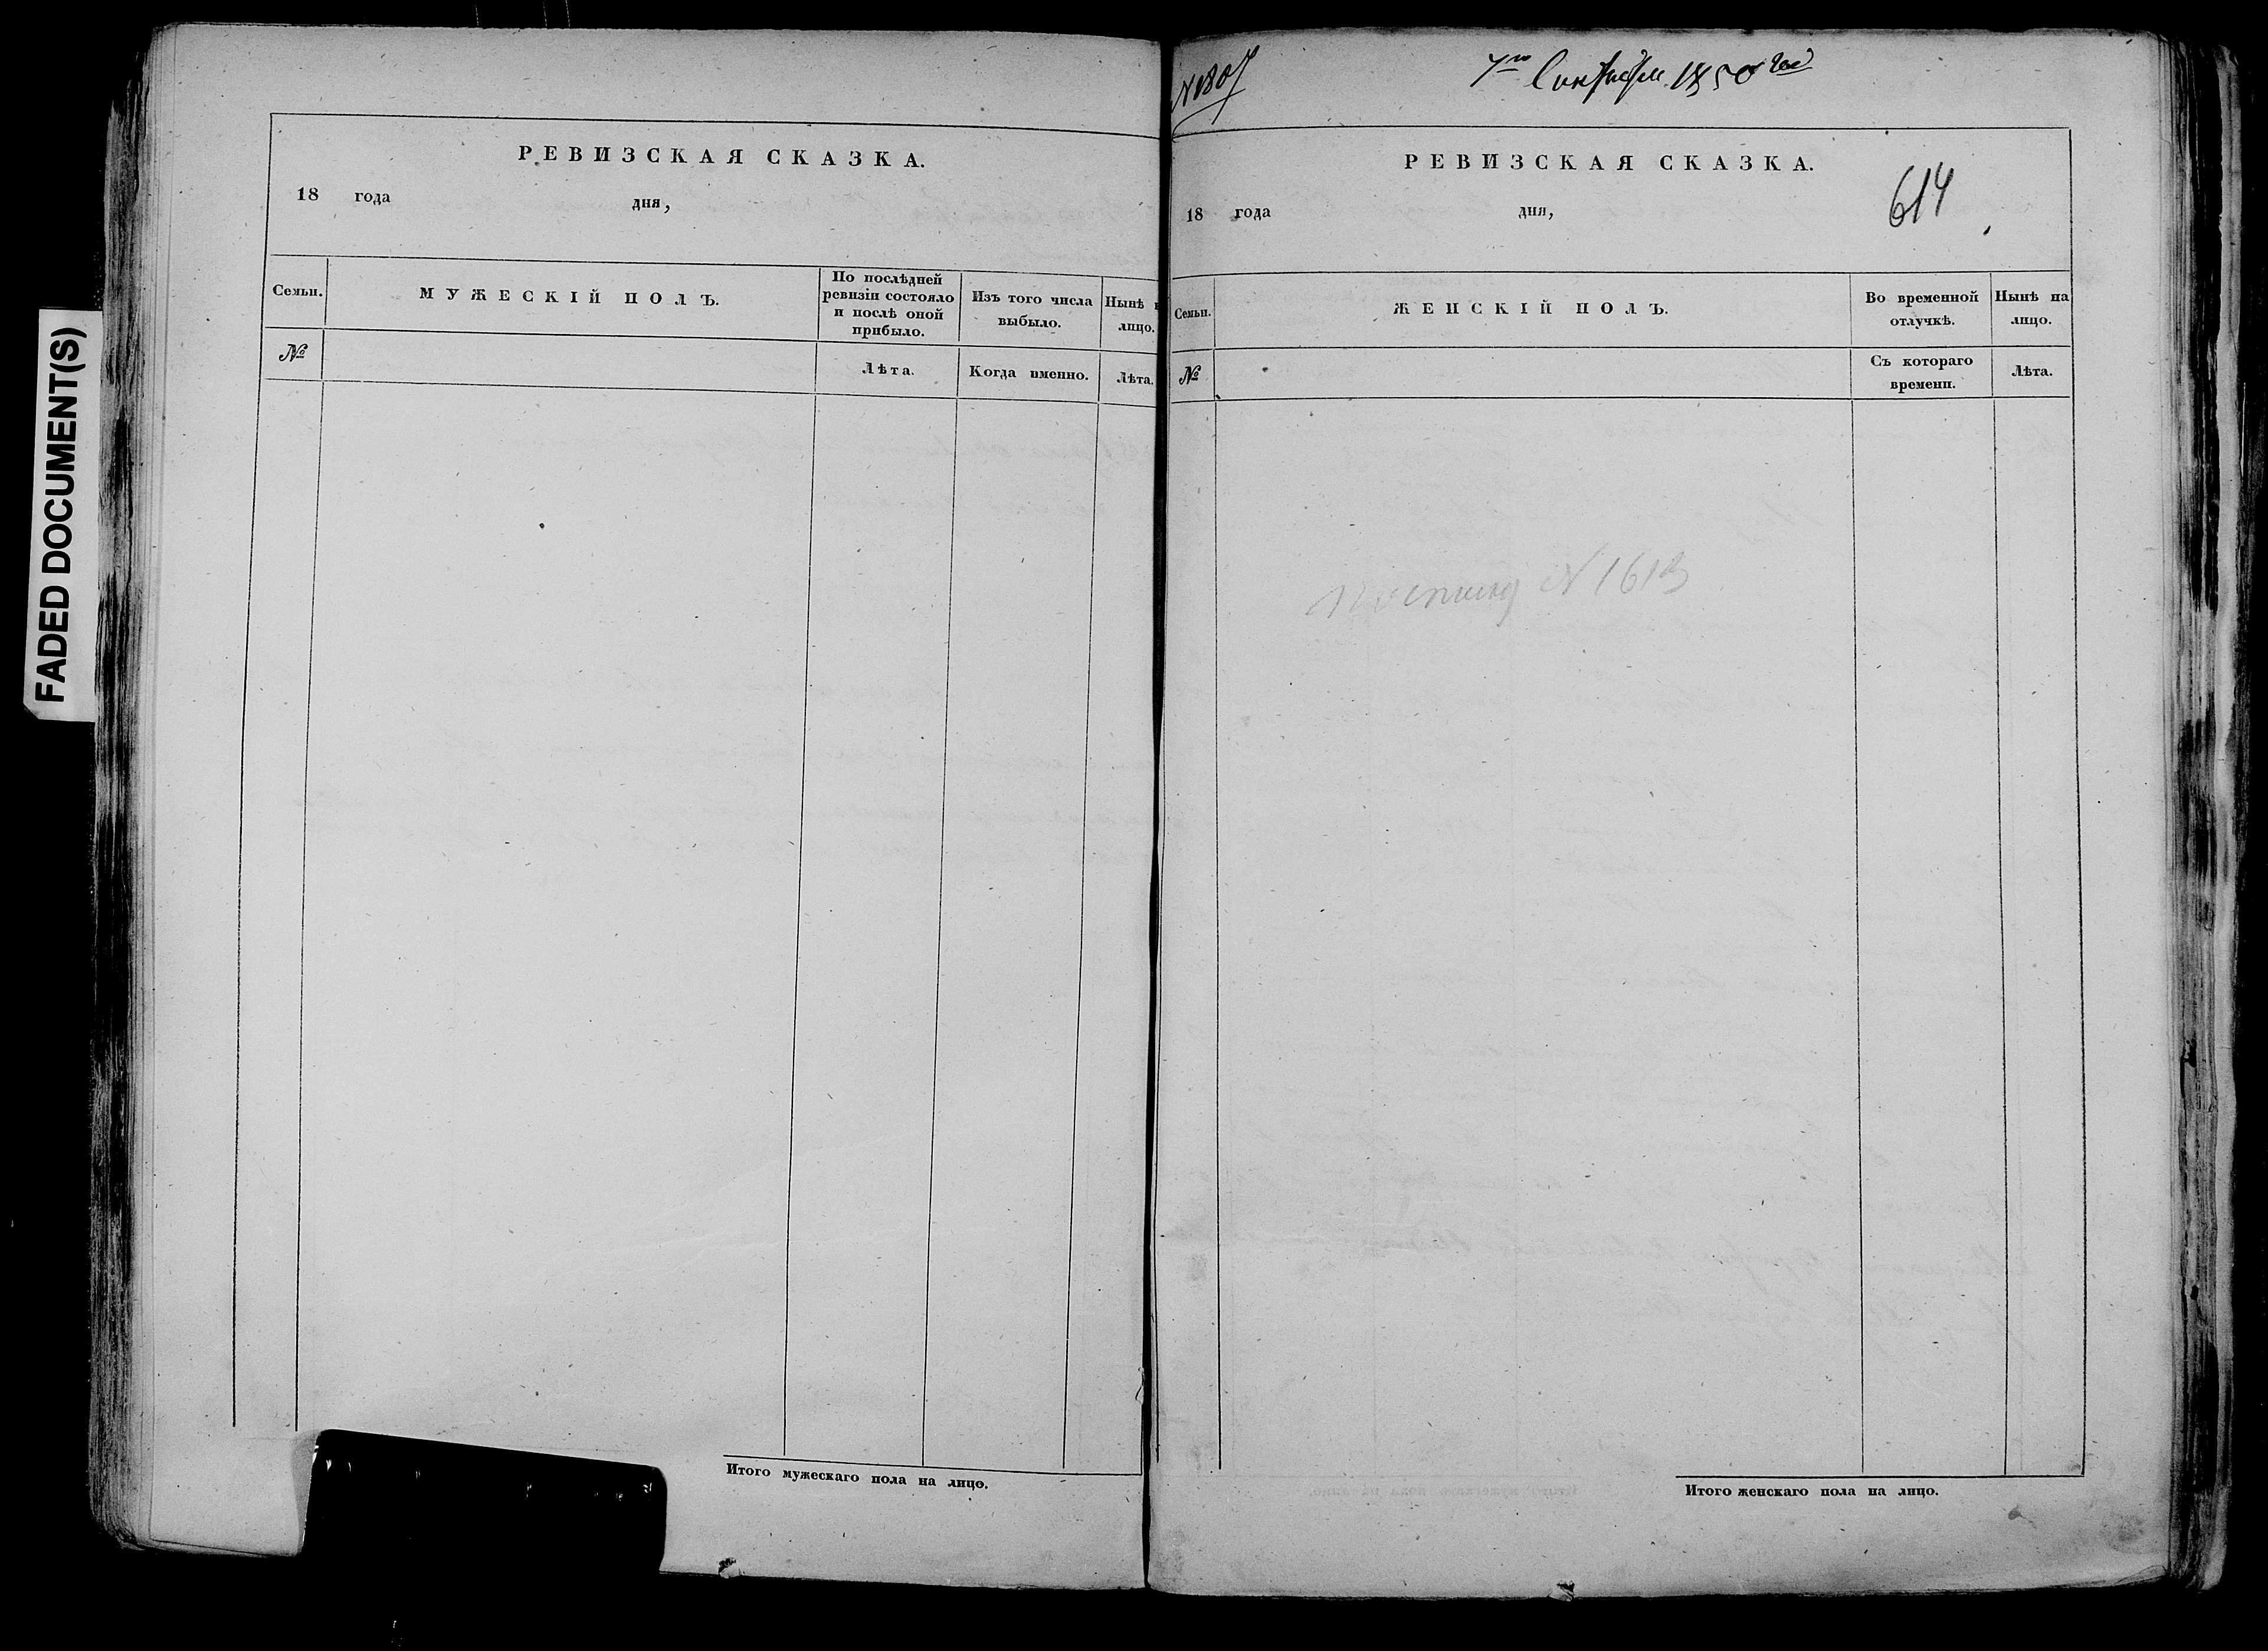 FADED DOCUMENT(S)
РЕВИЗСКАЯ СКАЗКА.
18 года дня,
Семьи. МУЖЕСКІЙ ПОЛЪ. По послѣдней ревизіи состояло и послѣ оной прибыло. Изъ того числа выбыло. Нынѣ н лицо.
№ Лѣта. Когда именно. Лѣта.
Итого мужескаго пола на лицо.
N 1807
7го Сентября 1850 год
РЕВИЗСКАЯ СКАЗКА.
614
18 года дня,
Семьи. ЖЕНСКІЙ ПОЛЪ. Во временной отлучкѣ. Нынѣ на лицо.
№ Съ котораго времени. Лѣта.
N 1613
Итого женскаго пола на лицо.